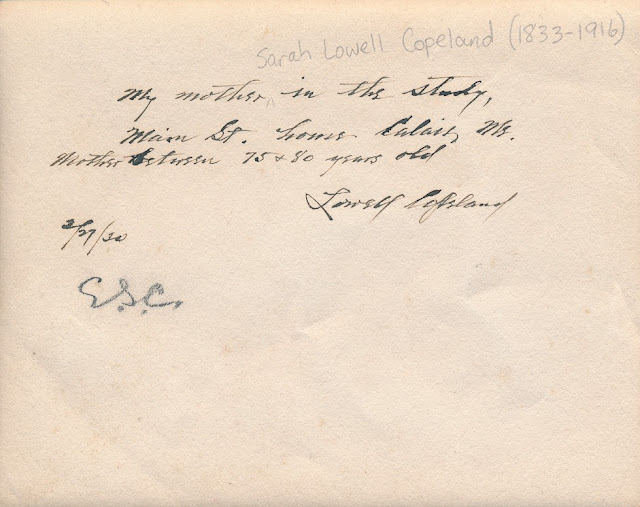 Sarah Lowell Copeland (1833-1916)
My mother, in the study,
Main St. home Calais, Me.
Mother between 75 & 80 years old
Lowell Copeland
2/27/30
E.S.C.